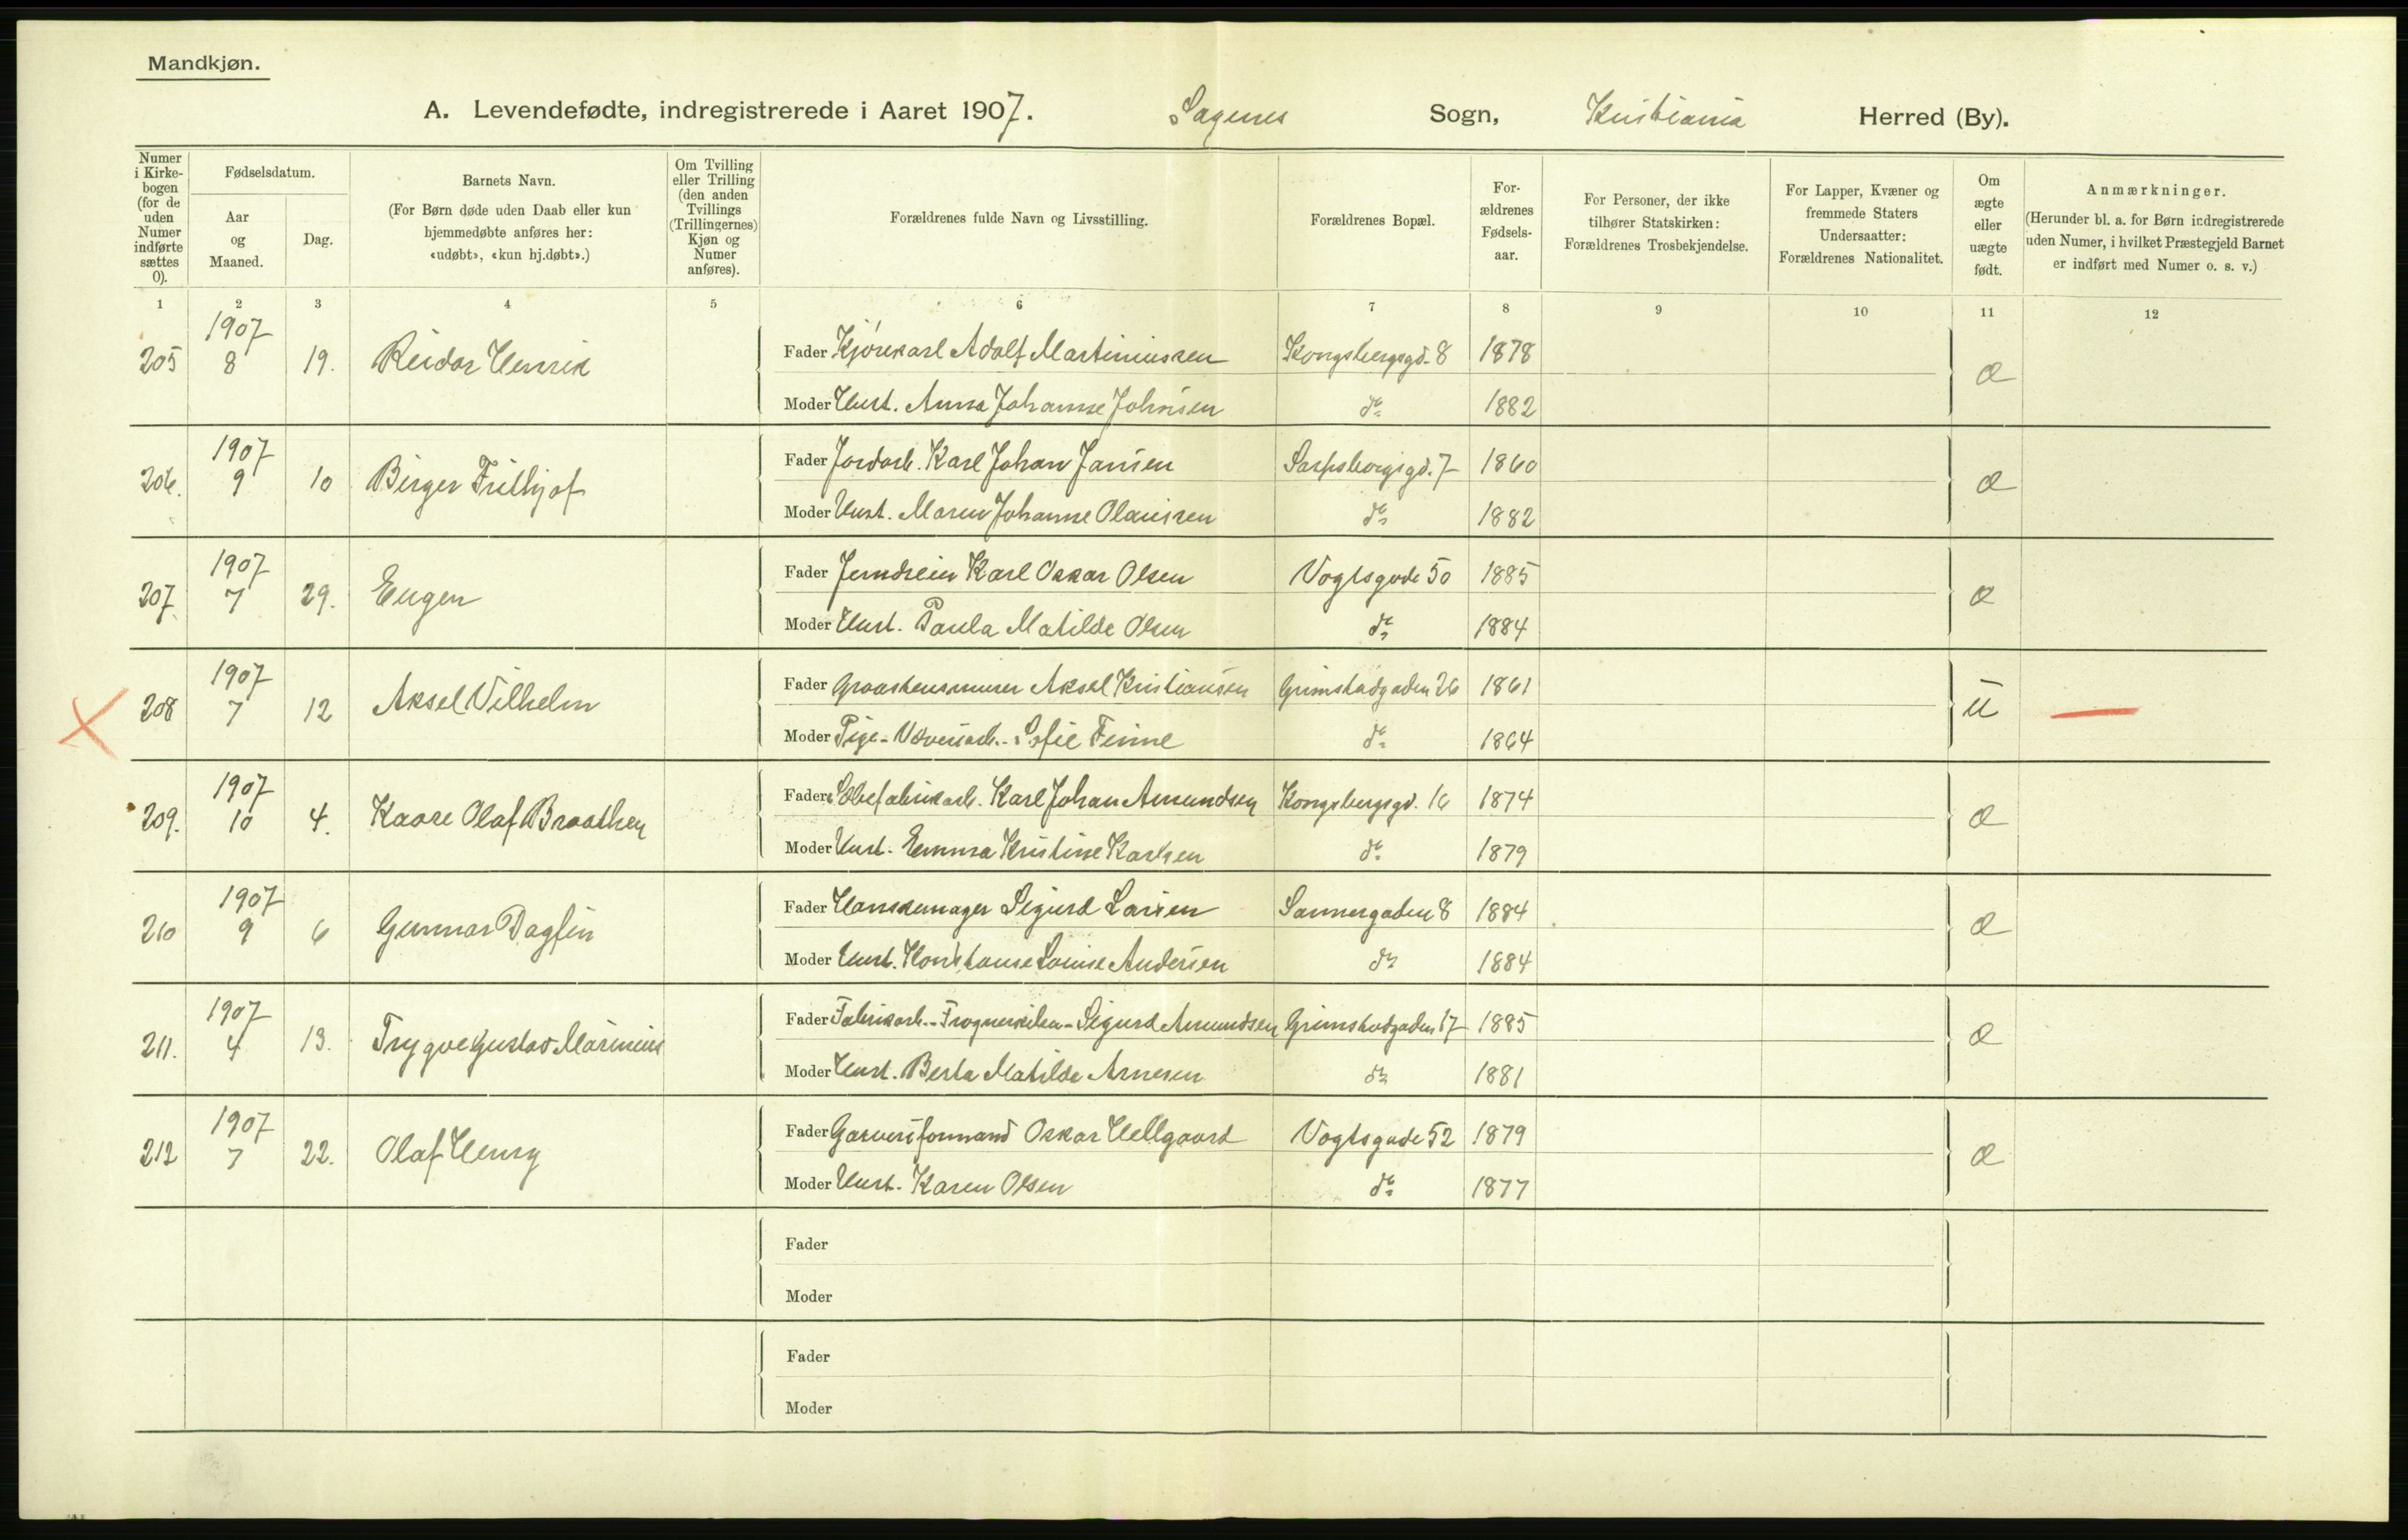 Mandkjøn.
A. Levendefødte, indregistrerede i Aaret 1907. Sagenes Sogn, Kristiania Herred (By).
Numer i Kirkebogen (for de uden Numer indførte sættes 0).
Fødselsdatum.
Aar og Maaned.
Dag.
Barnets Navn.
(For Børn døde uden Daab eller kun hjemmedøbte anføres her: «udøbt», «kun hj.døbt».)
Om Tvilling eller Trilling (den anden Tvillings (Trillingernes) Kjøn og Numer anføres).
Forældrenes fulde Navn og Livsstilling.
Forældrenes Bopæl.
Forældrenes Fødselsaar.
For Personer, der ikke tilhører Statskirken: Forældrenes Trosbekjendelse.
For Lapper, Kvæner og fremmede Staters Undersaatter: Forældrenes Nationalitet.
Om ægte eller uægte født.
Anmærkninger.
(Herunder bl. a. for Børn indregistrerede uden Numer, i hvilket Præstegjeld Barnet er indført med Numer o. s. v.)
1 2 3 4 5 6 7 8 9 10 11 12
205 1907 8 19. Reidar Henrik Fader Kjørekarl Adolf Martiniussen Kongsbergsgd. 8 1878 æ
Moder Hust. Anna Johanne Johnsen do 1882
206. 1907 9 10 Birger Frithjof Fader Jordarb. Karl Johan Jansen Sarpsborgsgd. 7 1860 æ
Moder Hust. Maren Johanne Olaussen do 1882
207. 1907 7 29. Eugen Fader Jerndreier Karl Oskar Olsen Vogtsgade 50 1885 æ
Moder Hust. Paula Matilde Olsen do 1884
208 1907 7 12 Aksel Vilhelm Fader Graastensmurer Aksel Kristiansen Grimstadgaden 26 1861 u
Moder Pige - Væveriarb. - Sofie Finne do 1864
209. 1907 10 4. Kaare Olaf Braathen Fader Karl Johan Amundsen Kongsbergsgd. 16 1874 æ
Moder Hust. Emma Kristine Karlsen do 1879
210 1907 9 6 Gunnar Dagfin Fader Hanskemager Sigurd Larsen Sannergaden 8 1884 æ
Moder Hust. Louise Andersen do 1884
211. 1907 4 13. Trygve Gustav Marinius Fader Fabrikarb. - Frognerkilen - Sigurd Amundsen Grimstadgaden 17 1885 æ
Moder Hust. Berta Matilde Arnesen do 1881
212 1907 7 22. Olaf Henry Fader Garveriformand Oskar Hellgaard Vogtsgade 52 1879 æ
Moder Hust. Karen Olsen do 1877
Fader
Moder
Fader
Moder